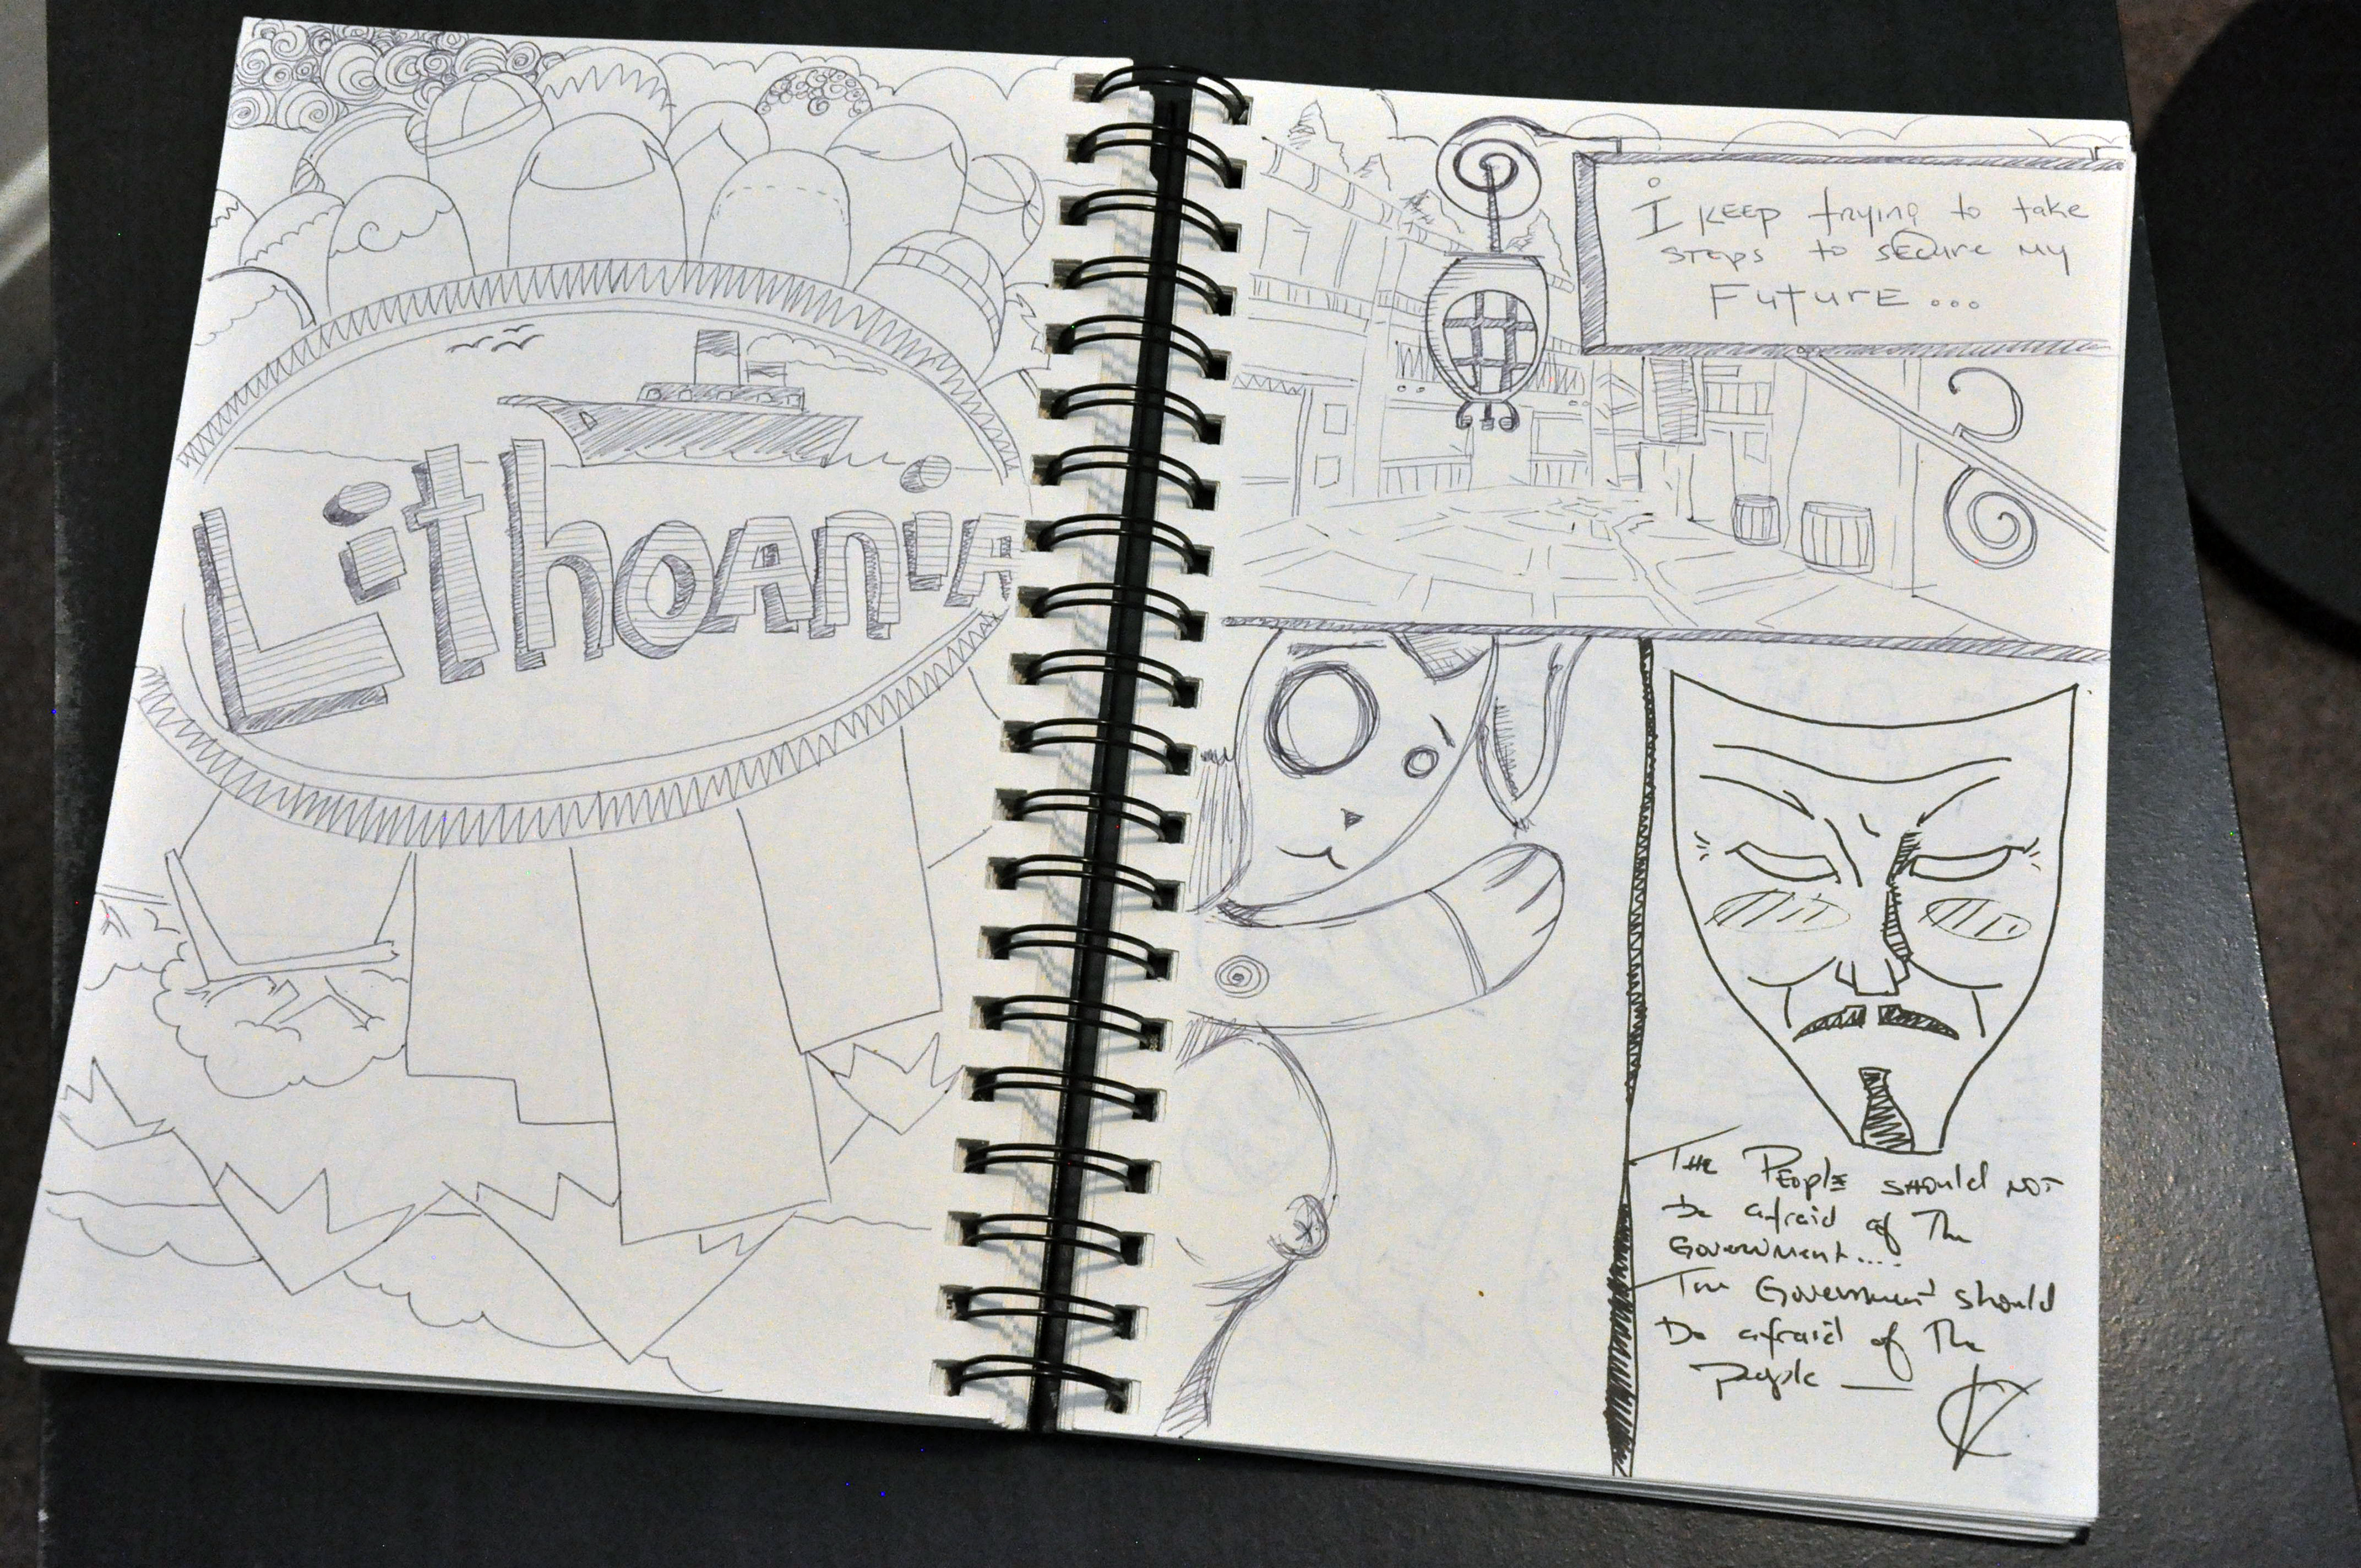 Lithoania
I KEEP trying to take
STEPS to sECure MY
FuturE...
THE PEoplE SHould NOT
be afraid of The
Government....
The Government should
be afraid of The
People — V